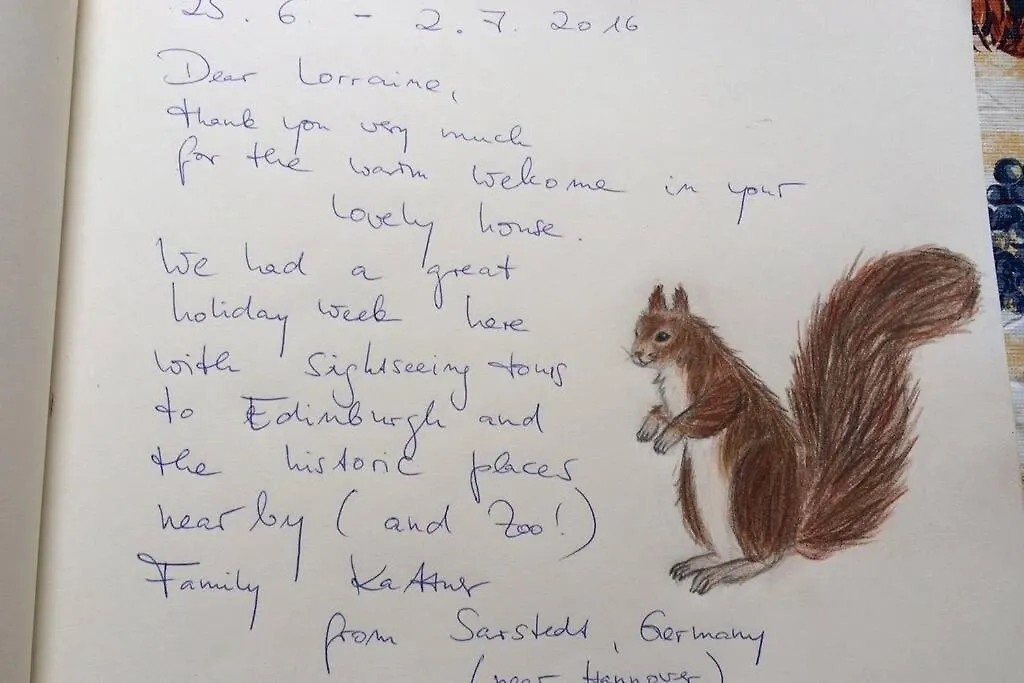 25. 6. - 2. 7. 2016
Dear Lorraine,
thank you very much
for the warm welcome in your
lovely house.
We had a great
holiday week here
with sightseeing tours
to Edinburgh and
the historic places
near by (and Zoo!)
Family Kattner
from Sarstedt, Germany
(near Hannover)